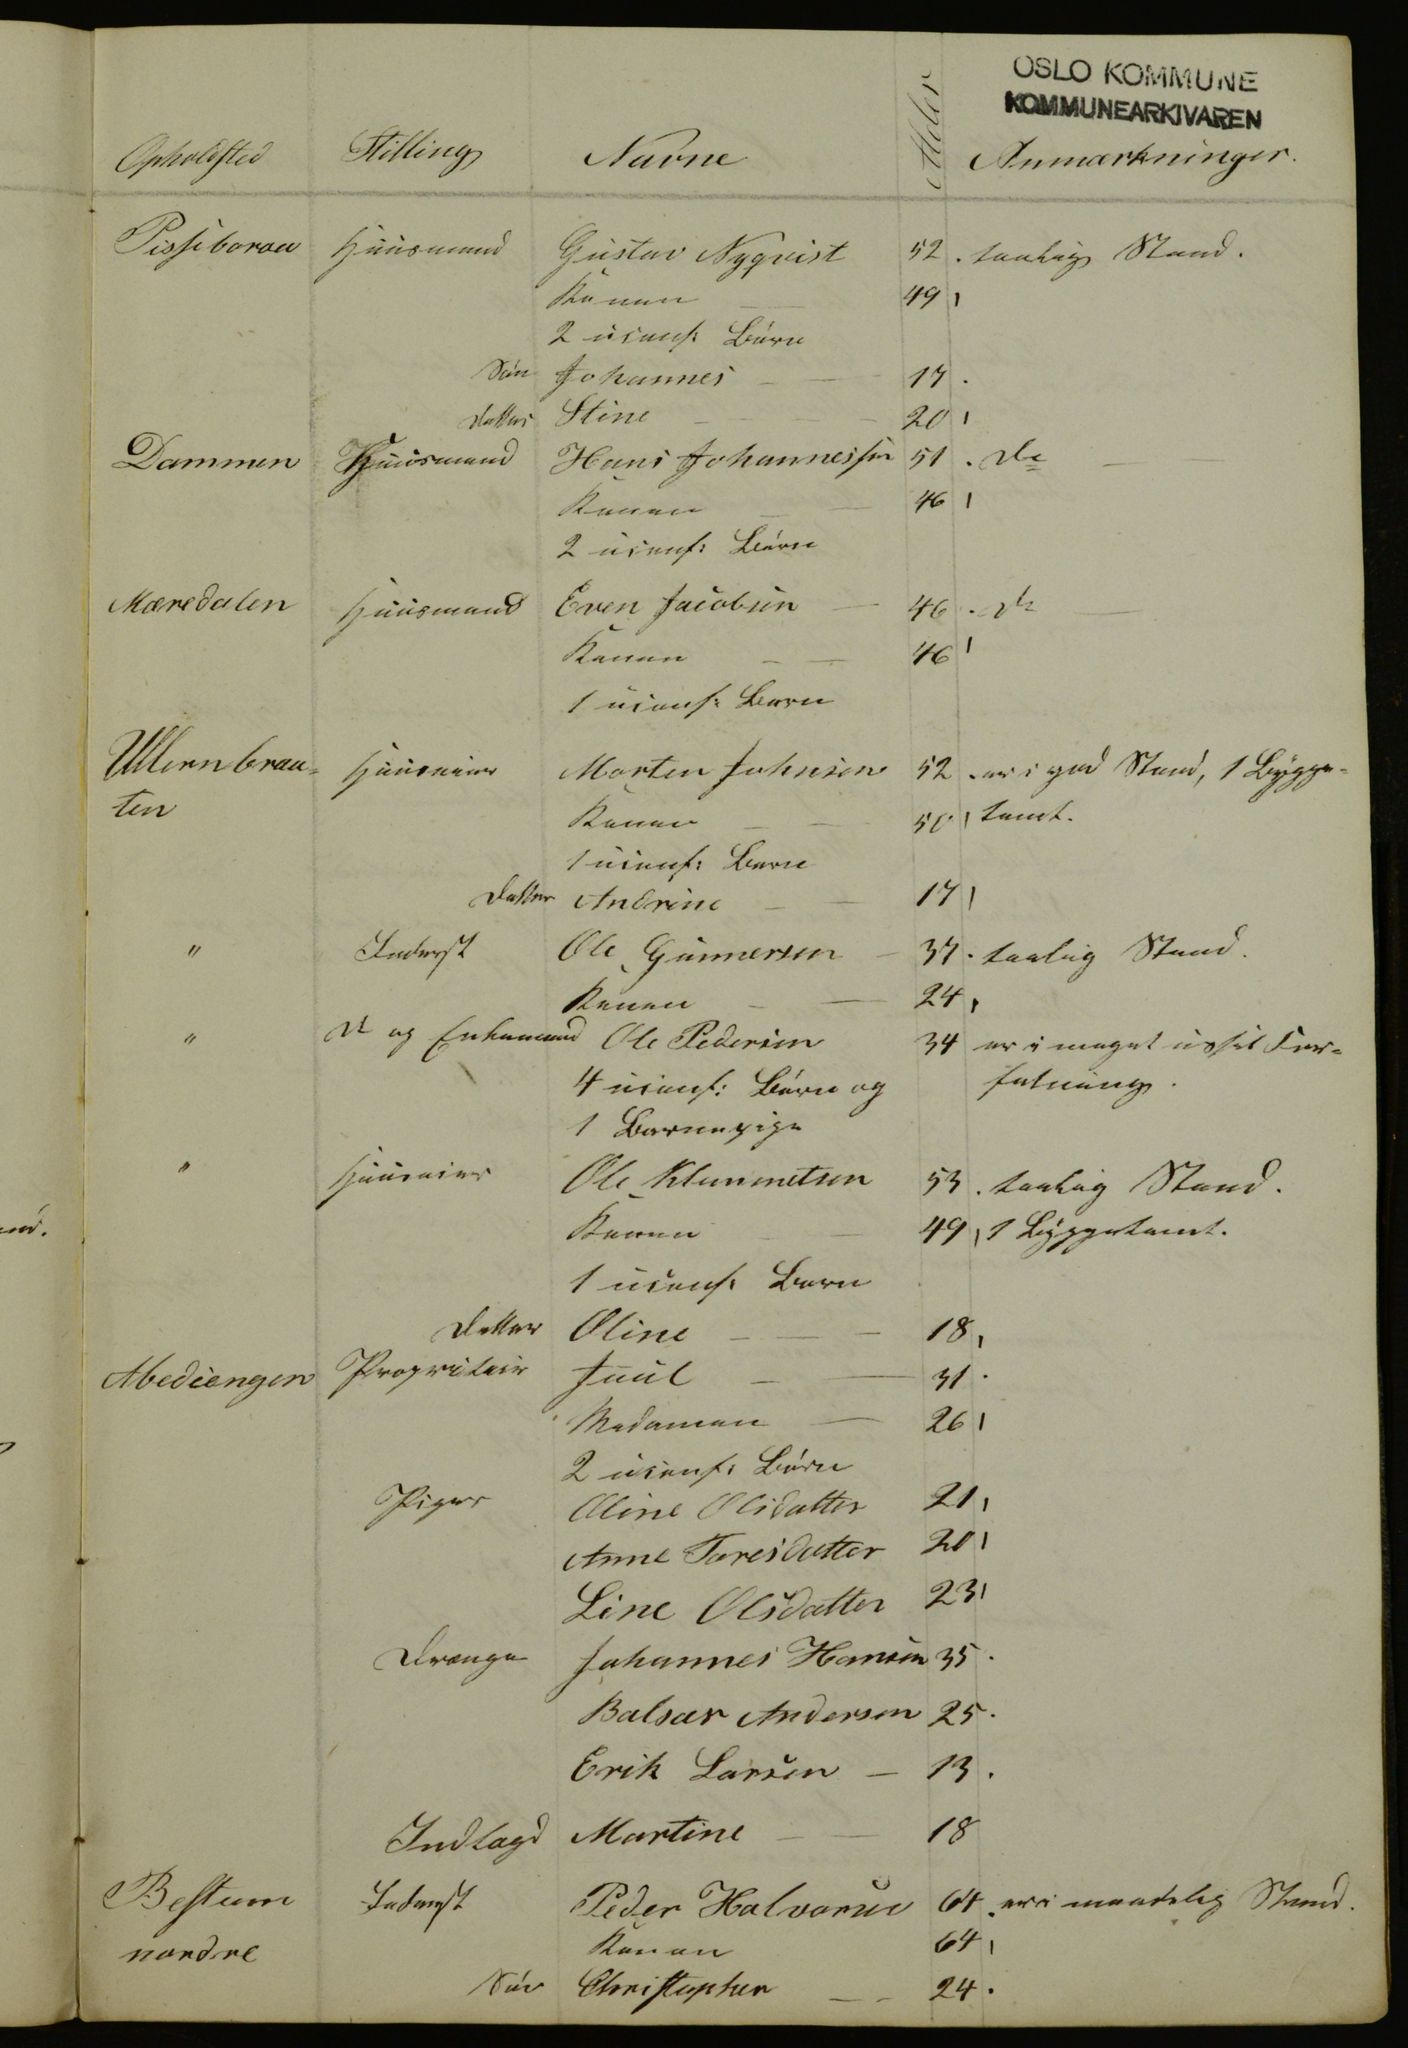 OSLO KOMMUNE
KOMMUNEARKIVAREN
Opholdsted Stilling Navne Alder Anmærkninger.
Huusmand Gustav Nyqvist 52 . taalig Stand.
Konen 49 ı
2 uconf: Börn
Sön Johannes 17 .
Datter Stine 20 ı
Dammen Huusmand Hans Johannessen 51 . do
Konen 46 ı
2 uconf: Börn
Mæredalen Huusmand Even Jacobsen 46 . do
Konen 46 ı
1 uconf: Barn
Ullernbraa- Huuseier Morten Johnsen 52 . er i god Stand, 1 Bygge-
ten Konen 50 ı tomt.
1 uconf: Barn
Datter Andrine 17 ı
" Inderst Ole Gunnersen 37 . taalig Stand.
Konen 24 ı
" do og Enkemand Ole Pedersen 34 er i meget ussel For-
4 uconf: Börn og fatning.
1 Barnepige
" Huuseier Ole Klemmetsen 53 . taalig Stand.
Konen 49 ı 1 Byggetomt.
1 uconf: Barn
Datter Oline 18 ı
Abediengen Proprietair Juul 31 .
Madamen 26 ı
2 uconf: Börn
Piger Oline Olsdatter 21 ı
Anne Taresdatter 20 ı
Line Olsdatter 23 ı
Drenge Johannes Hansen 35 .
Balsar Andersen 25 .
Erik Larsen 13 .
Indlagd Martine 18
Bestum Inderst Peder Halvorsen 64 . er i maadelig Stand.
nordre Konen 64 ı
Sön Christopher 24 .